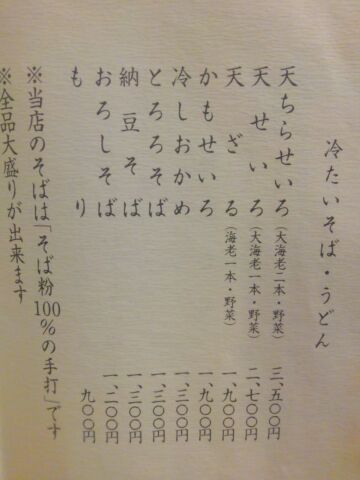 冷たいそば・うどん
天ちらせいろ(大海老二本・野菜) 三、五〇〇円
天せいろ(大海老一本・野菜) 二、七〇〇円
天ざる(海老一本・野菜) 一、九〇〇円
かもせいろ 一、九〇〇円
冷しおかめ 一、三〇〇円
とろろそば 一、三〇〇円
納豆そば 一、三〇〇円
おろしそば 一、二〇〇円
もり 九〇〇円
※当店のそばは「そば粉100%の手打」です
※全品大盛りが出来ます